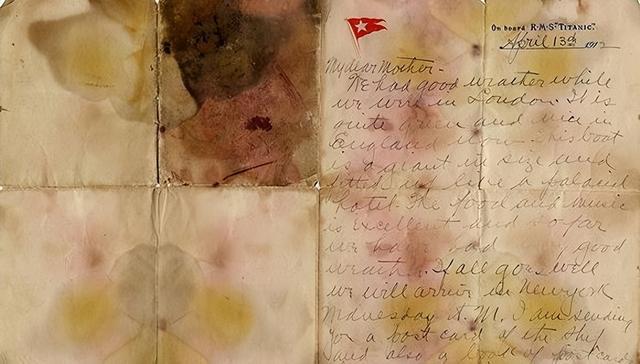 On board R·M·S· "TITANIC".
April 13th 1912
My dear Mother -
We had good weather while
we were in London. It is
quite green and nice in
England now. This boat
is a giant in size and
fitted up like a palacial
hotel. The food and music
is excellent and so far
we have had very good
weather. If all goes well
we will arrive in New York
Wednesday A.M. I am sending
you a post card of the ship
and also a book of postcards